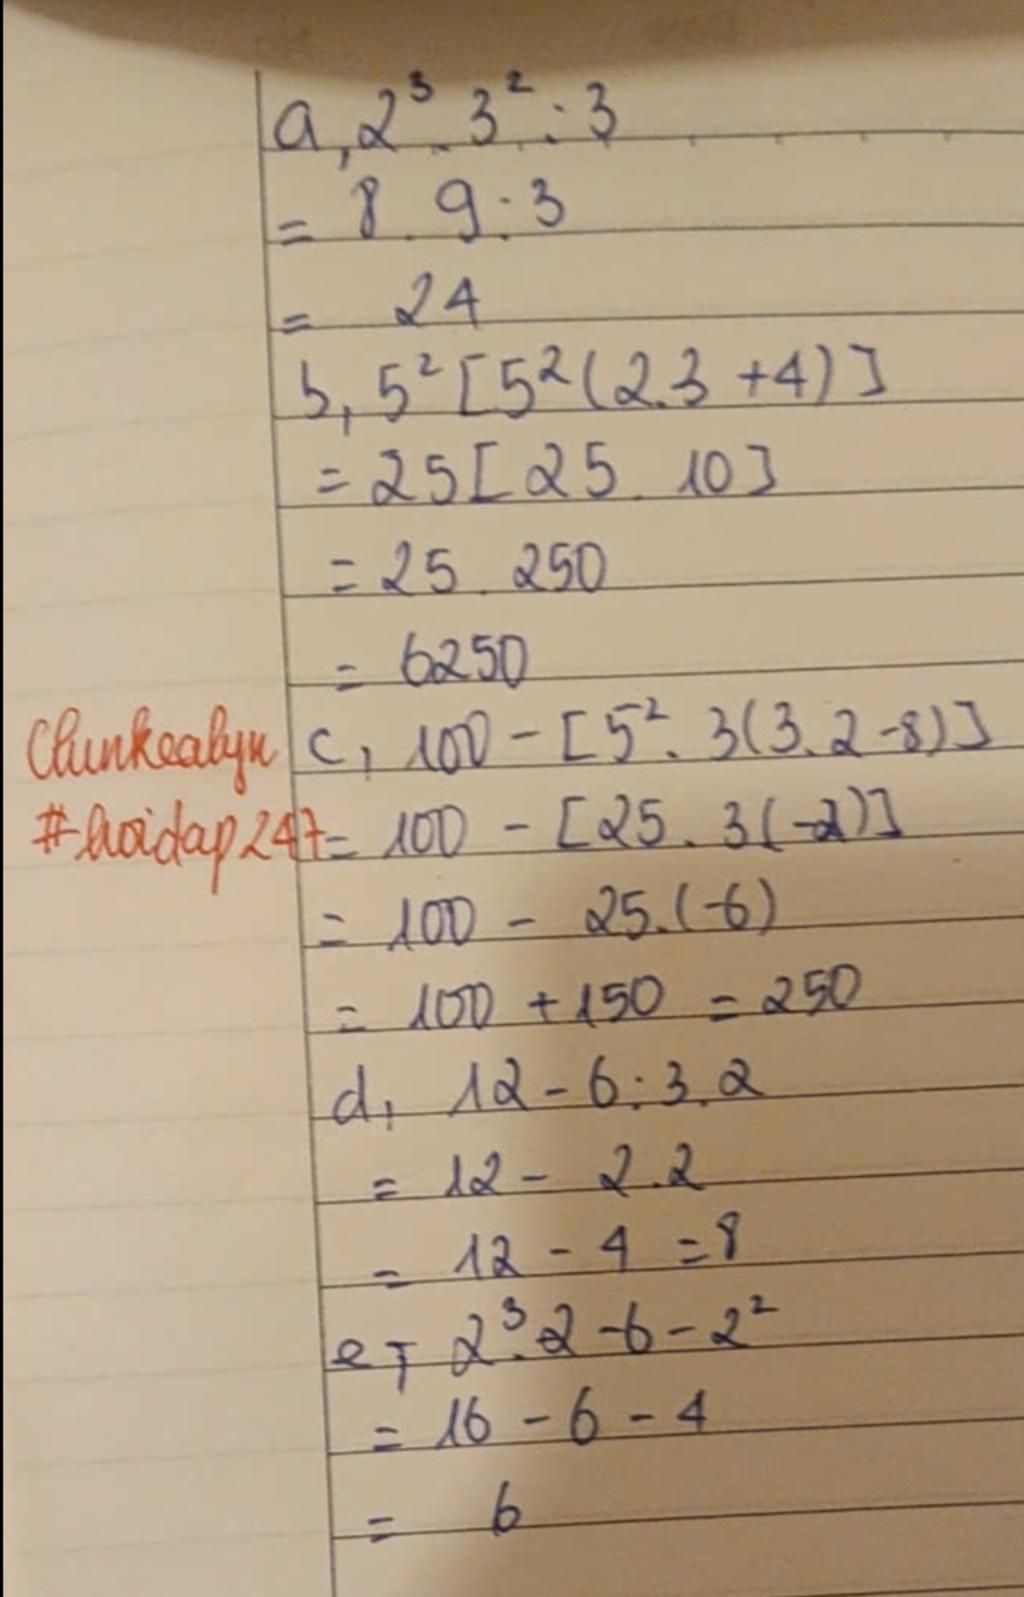 a, 2³ . 3² : 3
= 8 . 9 : 3
= 24
b, 5² [5² (2.3 + 4)]
= 25 [25 . 10]
= 25 . 250
= 6250
Clunkealyn
#hoidap247
c, 100 - [5² . 3(3.2 - 8)]
= 100 - [25 . 3(-2)]
= 100 - 25.(-6)
= 100 + 150 = 250
d, 12 - 6 : 3 . 2
= 12 - 2.2
= 12 - 4 = 8
e, 2³.2 - 6 - 2²
= 16 - 6 - 4
= 6